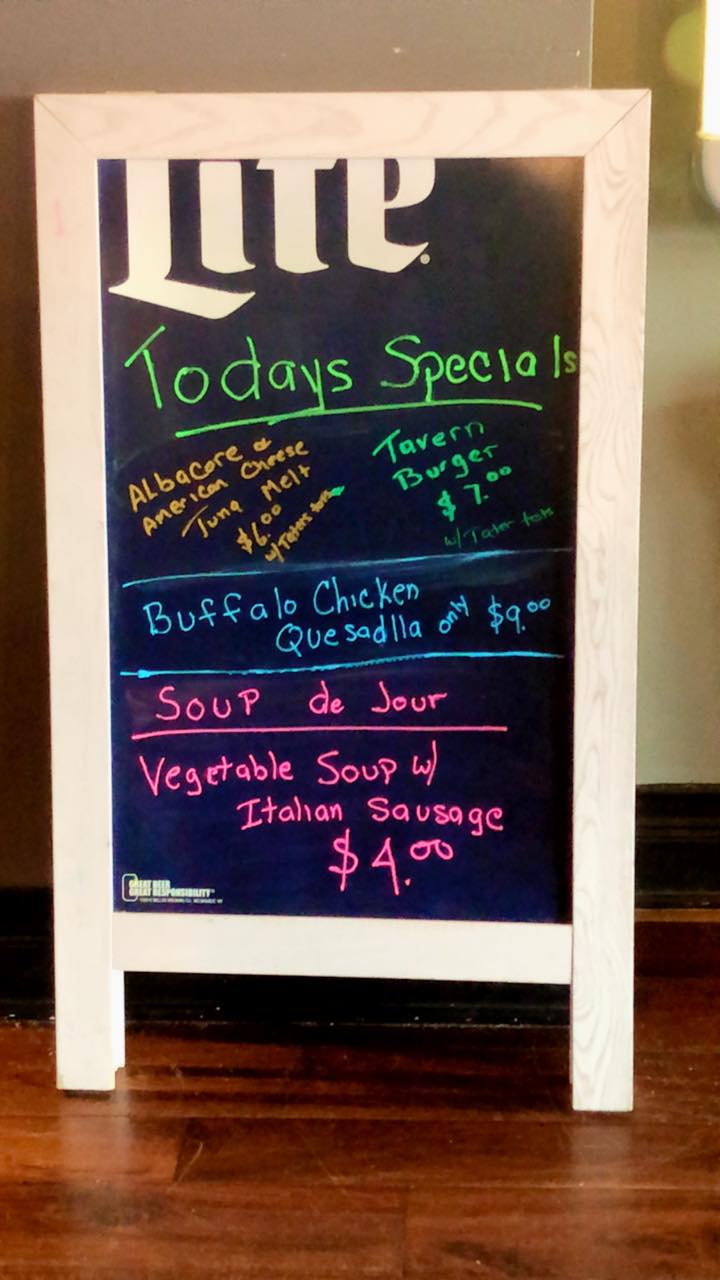 Lite
Todays Specials
Albacore &
American Cheese
Tuna Melt
$6.00
w/Taters tots
Tavern
Burger
$7.00
w/Tater tots
Buffalo Chicken
Quesadlla only $9.00
Soup de Jour
Vegetable Soup w/
Italian Sausage
$4.00
GREAT BEER
GREAT RESPONSIBILITY